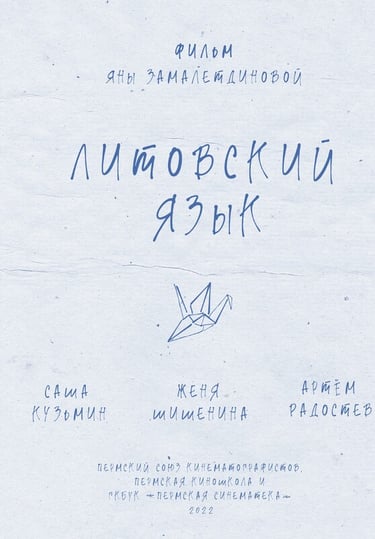 ФИЛЬМ
ЯНЫ ЗАМАЛЕТДИНОВОЙ
ЛИТОВСКИЙ
ЯЗЫК
САША
КУЗЬМИН
ЖЕНЯ
ШИШЕНИНА
АРТЁМ
РАДОСТЕВ
ПЕРМСКИЙ СОЮЗ КИНЕМАТОГРАФИСТОВ,
ПЕРМСКАЯ КИНОШКОЛА И
ГКБУК «ПЕРМСКАЯ СИНЕМАТЕКА»
2022